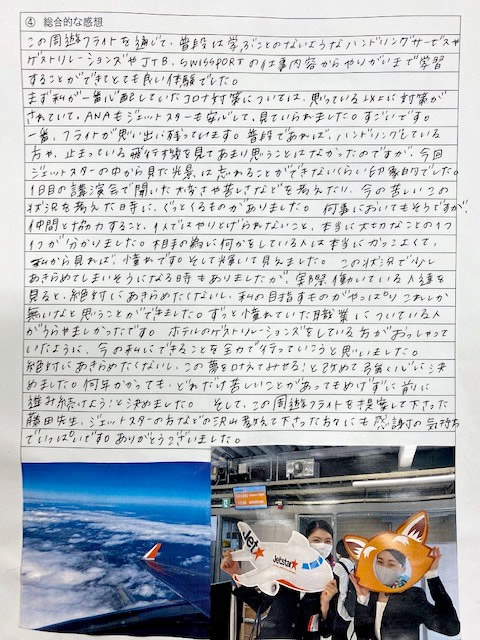 ④ 総合的な感想
この周遊フライトを通じて、普段は学ぶことのないようなハンドリングサービスや
ゲストリレーションズやJTB、SWISSPORTの仕事内容からやりがいまで学習
することができてとても良い体験でした。
まず私が一番心配していたコロナ対策については、思っている以上に対策が
されていて、ANAもジェットスターも安心して、見ていられました。すごいです。
一番、フライトが思い出に残っています。普段であれば、ハンドリングしている
方や、止まっている飛行機を見てあまり思うことはなかったのですが、今回
ジェットスターの中から見た光景は忘れることができないくらい印象的でした。
1日目の講演会で聞いた大変さや苦しさなどを考えたり、今の苦しいこの
状況を考えた時に、ぐっとくるものがありました。何事においてもそうですが、
仲間と協力すること、1人ではやりとげられないこと、本当に大切なことの1つ
1つが分かりました。相手の為に何かをしている人は本当にかっこよくて、
私から見れば、憧れです。そして輝いて見えました。この状況で少し
あきらめてしまいそうになる時もありましたが、実際働いている人達を
見ると、絶対にあきらめたくないし、私の目指すものがやっぱりこれしか
無いなと思うことができました。ずっと憧れていた職業についている人
がうらやましかったです。ホテルのゲストリレーションズをしている方がおっしゃって
いたように、今の私にできることを全力で行っていこうと思いました。
絶対にあきらめたくないし、この夢を叶えてみせる!と改めて強く心に決
めました。何年かかっても、どれだけ苦しいことがあってもめげずに前に
進み続けよう!と決めました。そして、この周遊フライトを提案して下さった
藤田先生、ジェットスターの方などの沢山教えて下さった方々にも感謝の気持ち
でいっぱいです。ありがとうございました。
Jetstar
Jetstar